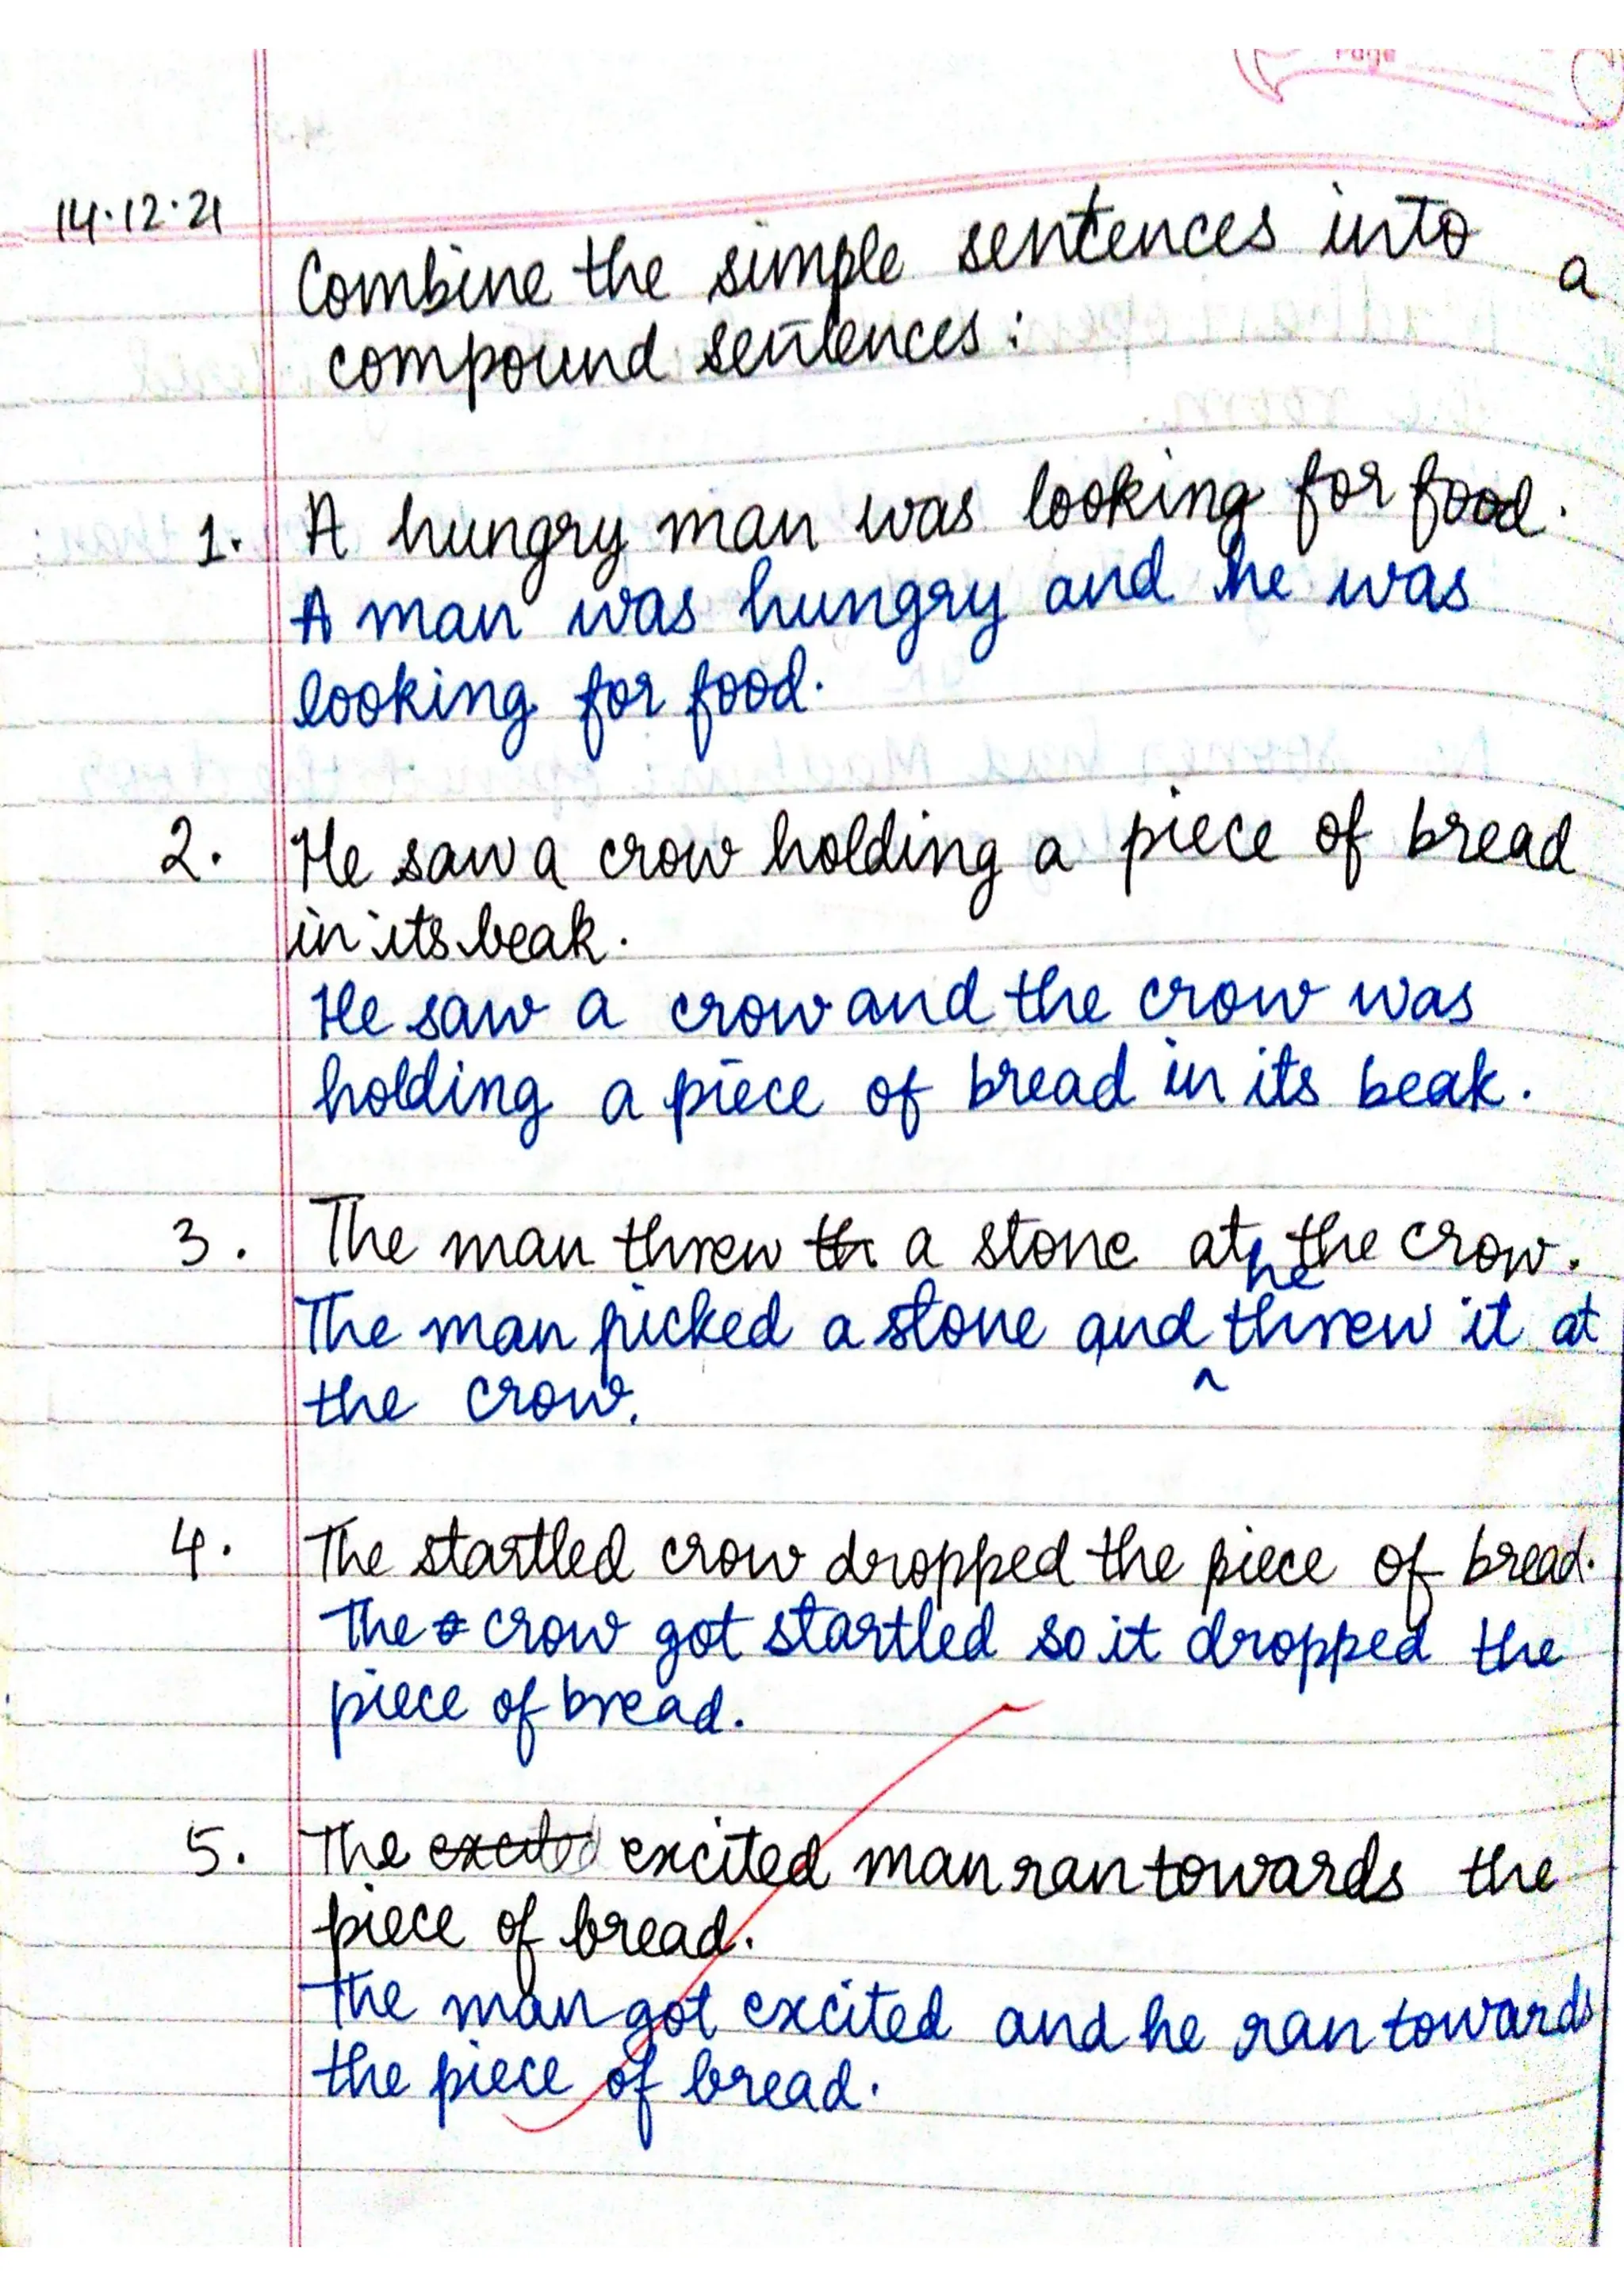 Page
14.12.21
Combine the simple sentences into a
compound sentences:
1. A hungry man was looking for food.
A man was hungry and he was
looking for food.
2. He saw a crow holding a piece of bread
in its beak.
He saw a crow and the crow was
holding a piece of bread in its beak.
3. The man threw th a stone at the crow.
he
The man picked a stone and ^ threw it at
the crow.
4. The startled crow dropped the piece of bread.
The crow got startled so it dropped the
piece of bread.
5. The excited excited man ran towards the
piece of bread.
The man got excited and he ran towards
the piece of bread.